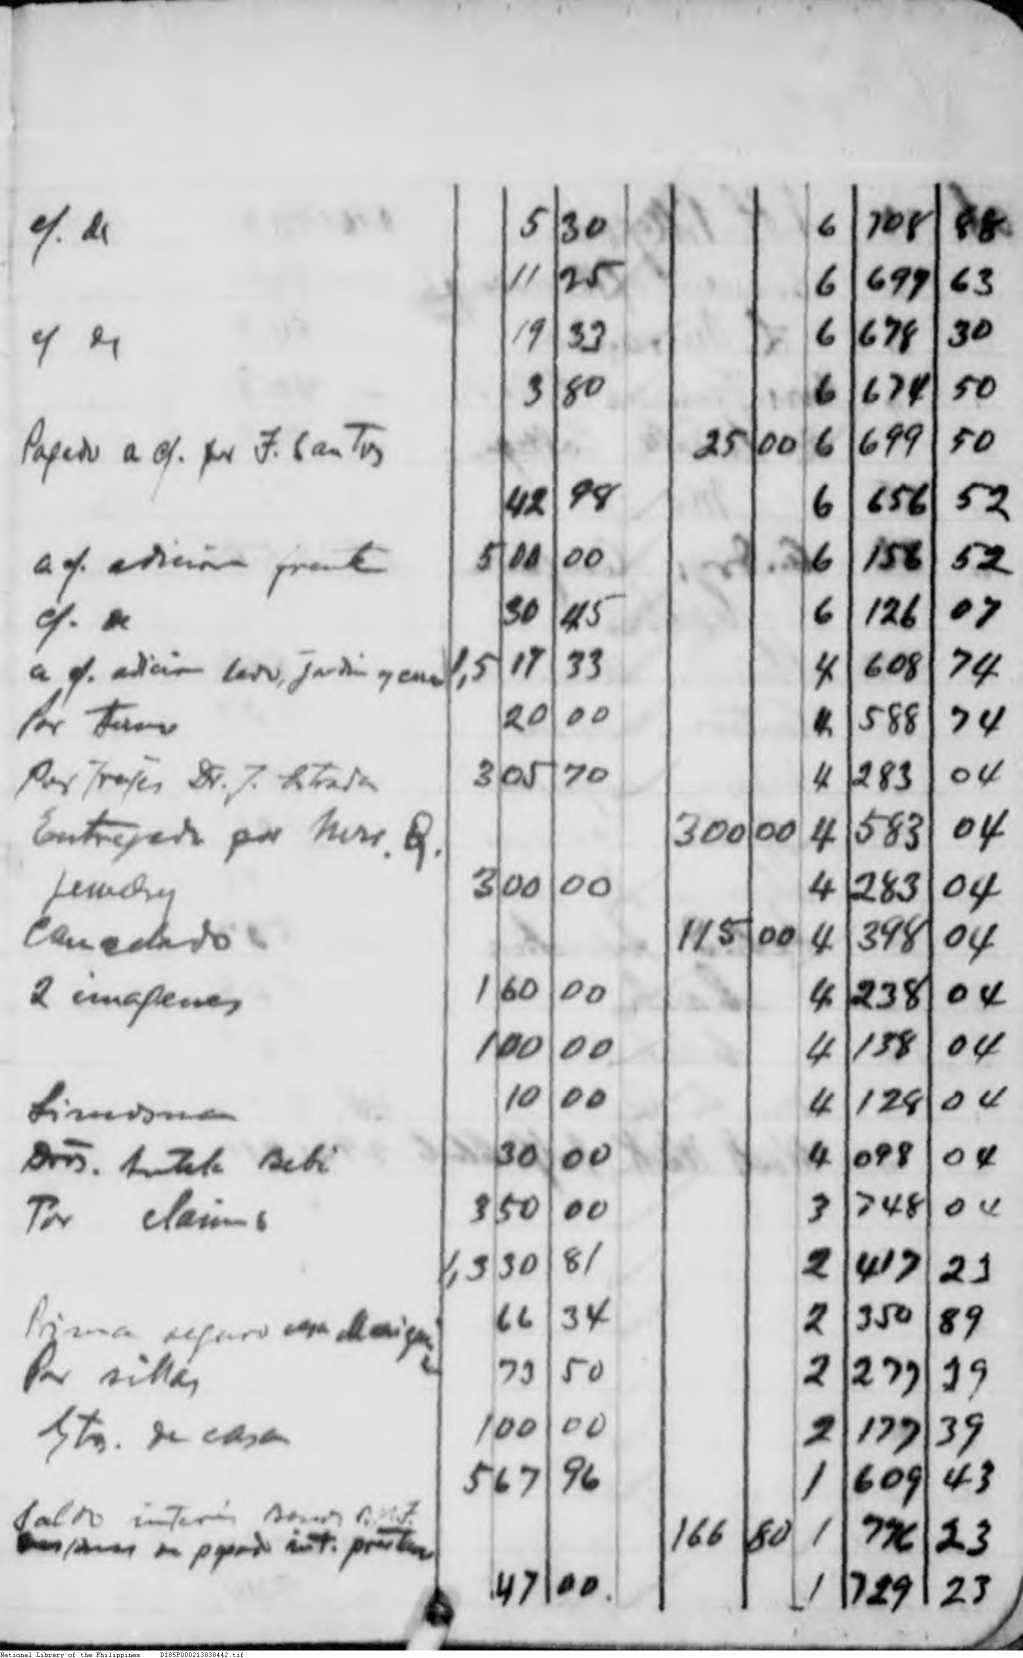 cf. de 5 30 6 708 88
11 25 6 697 63
cf de 19 33 6 678 30
3 80 6 674 50
Pagado a cf. por F. Santos 25 00 6 699 50
42 98 6 656 52
a cf. adicion frente 500 00 6 156 52
cf. de 30 45 6 126 07
a cf. adicion lado, jardin y 1,517 33 4 608 74
Por 20 00 4 588 74
Por trajes Dr. J. Estrada 305 70 4 283 04
Entregado por Mrs. Q. 300 00 4 583 04
Jewelry 300 00 4 283 04
Cancelado 115 00 4 398 04
2 imagenes 160 00 4 238 04
100 00 4 138 04
Limosna 10 00 4 128 04
Dros. Bebi 30 00 4 098 04
Por claims 350 00 3 748 04
1,330 81 2 417 23
Prima seguro casa 66 34 2 350 89
Por sillas 73 50 2 277 39
Gtos. de casa 100 00 2 177 39
567 96 1 609 43
Saldo interes Bonos
pagado int. 166 80 1 776 23
47 00. 1 729 23
National Library of the Philippines D185P000213030442.tif